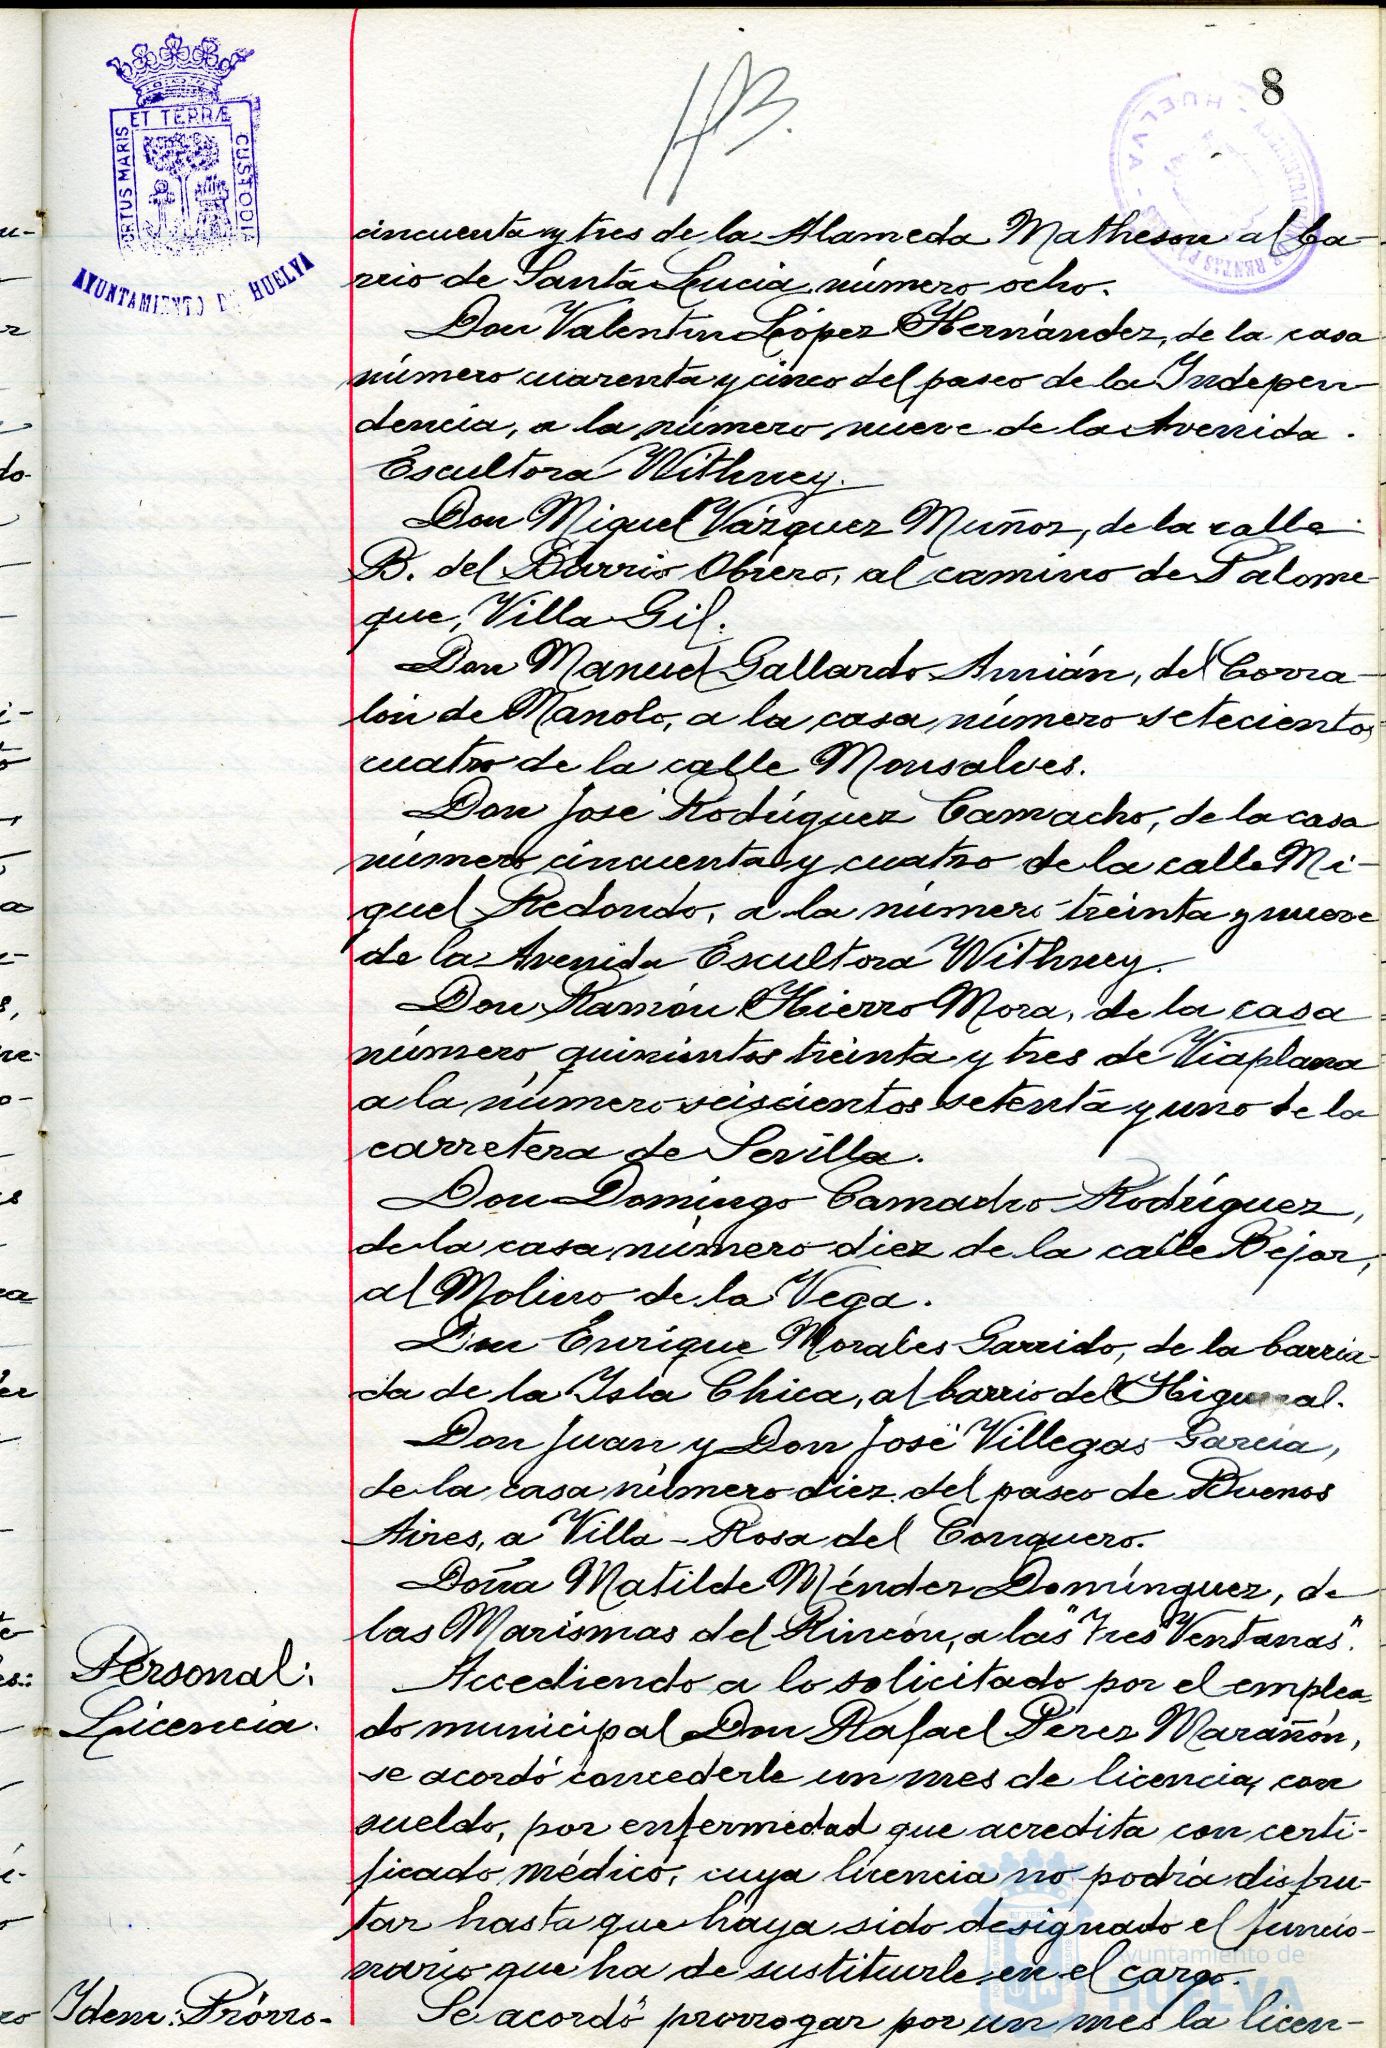 8
ET TERRÆ
CUSTODIA
AYUNTAMIENTO DE HUELVA
HUELVA
cincuenta y tres de la Alameda Matheson al ba-
rrio de Santa Lucia, número ocho.
Don Valentín López Hernández, de la casa
número cuarenta y cinco del paseo de la Indepen
dencia, a la número nueve de la Avenida
Escultora Withney.
Don Miguel Vázquez Muñoz, de la calle
B. del Barrio Obrero, al camino de Palome-
que, Villa Gil.
Don Manuel Gallardo Amián, del Corra-
lón de Manolo, a la casa número setecientos
cuatro de la calle Monsalves.
Don José Rodúguez Camacho, de la casa
número cincuenta y cuatro de la calle Mi-
guel Redondo, a la número treinta y nueve
de la Avenida Escultora Withney.
Don Ramón Hierro Mora, de la casa
número quinientos treinta y tres de Viaplana
a la número seiscientos setenta y uno de la
carretera de Sevilla.
Don Domingo Camacho Rodríguez,
de la casa número diez de la calle Béjar,
al Molino de la Vega.
Don Enrique Morales Garrido, de la barria-
da de la Isla Chica, al barrio del Higueral.
Don Juan y Don José Villegas García,
de la casa número diez del paseo de Buenos
Aires, a Villa-Rosa del Conquero.
Doña Matilde Méndez Domínguez, de
las Marismas del Rincón, a las "Tres Ventanas".
Personal:
Licencia.
Accediendo a lo solicitado por el emplea
do municipal Don Rafael Pérez Marañón,
se acordó concederle un mes de licencia, con
sueldo, por enfermedad que acredita con certi-
ficado médico, cuya licencia no podrá disfru-
tar hasta que haya sido designado el funcio-
nario que ha de sustituirle en el cargo.
Idem: Prórro-
Se acordó prorrogar por un mes la licen-
Ayuntamiento de
HUELVA